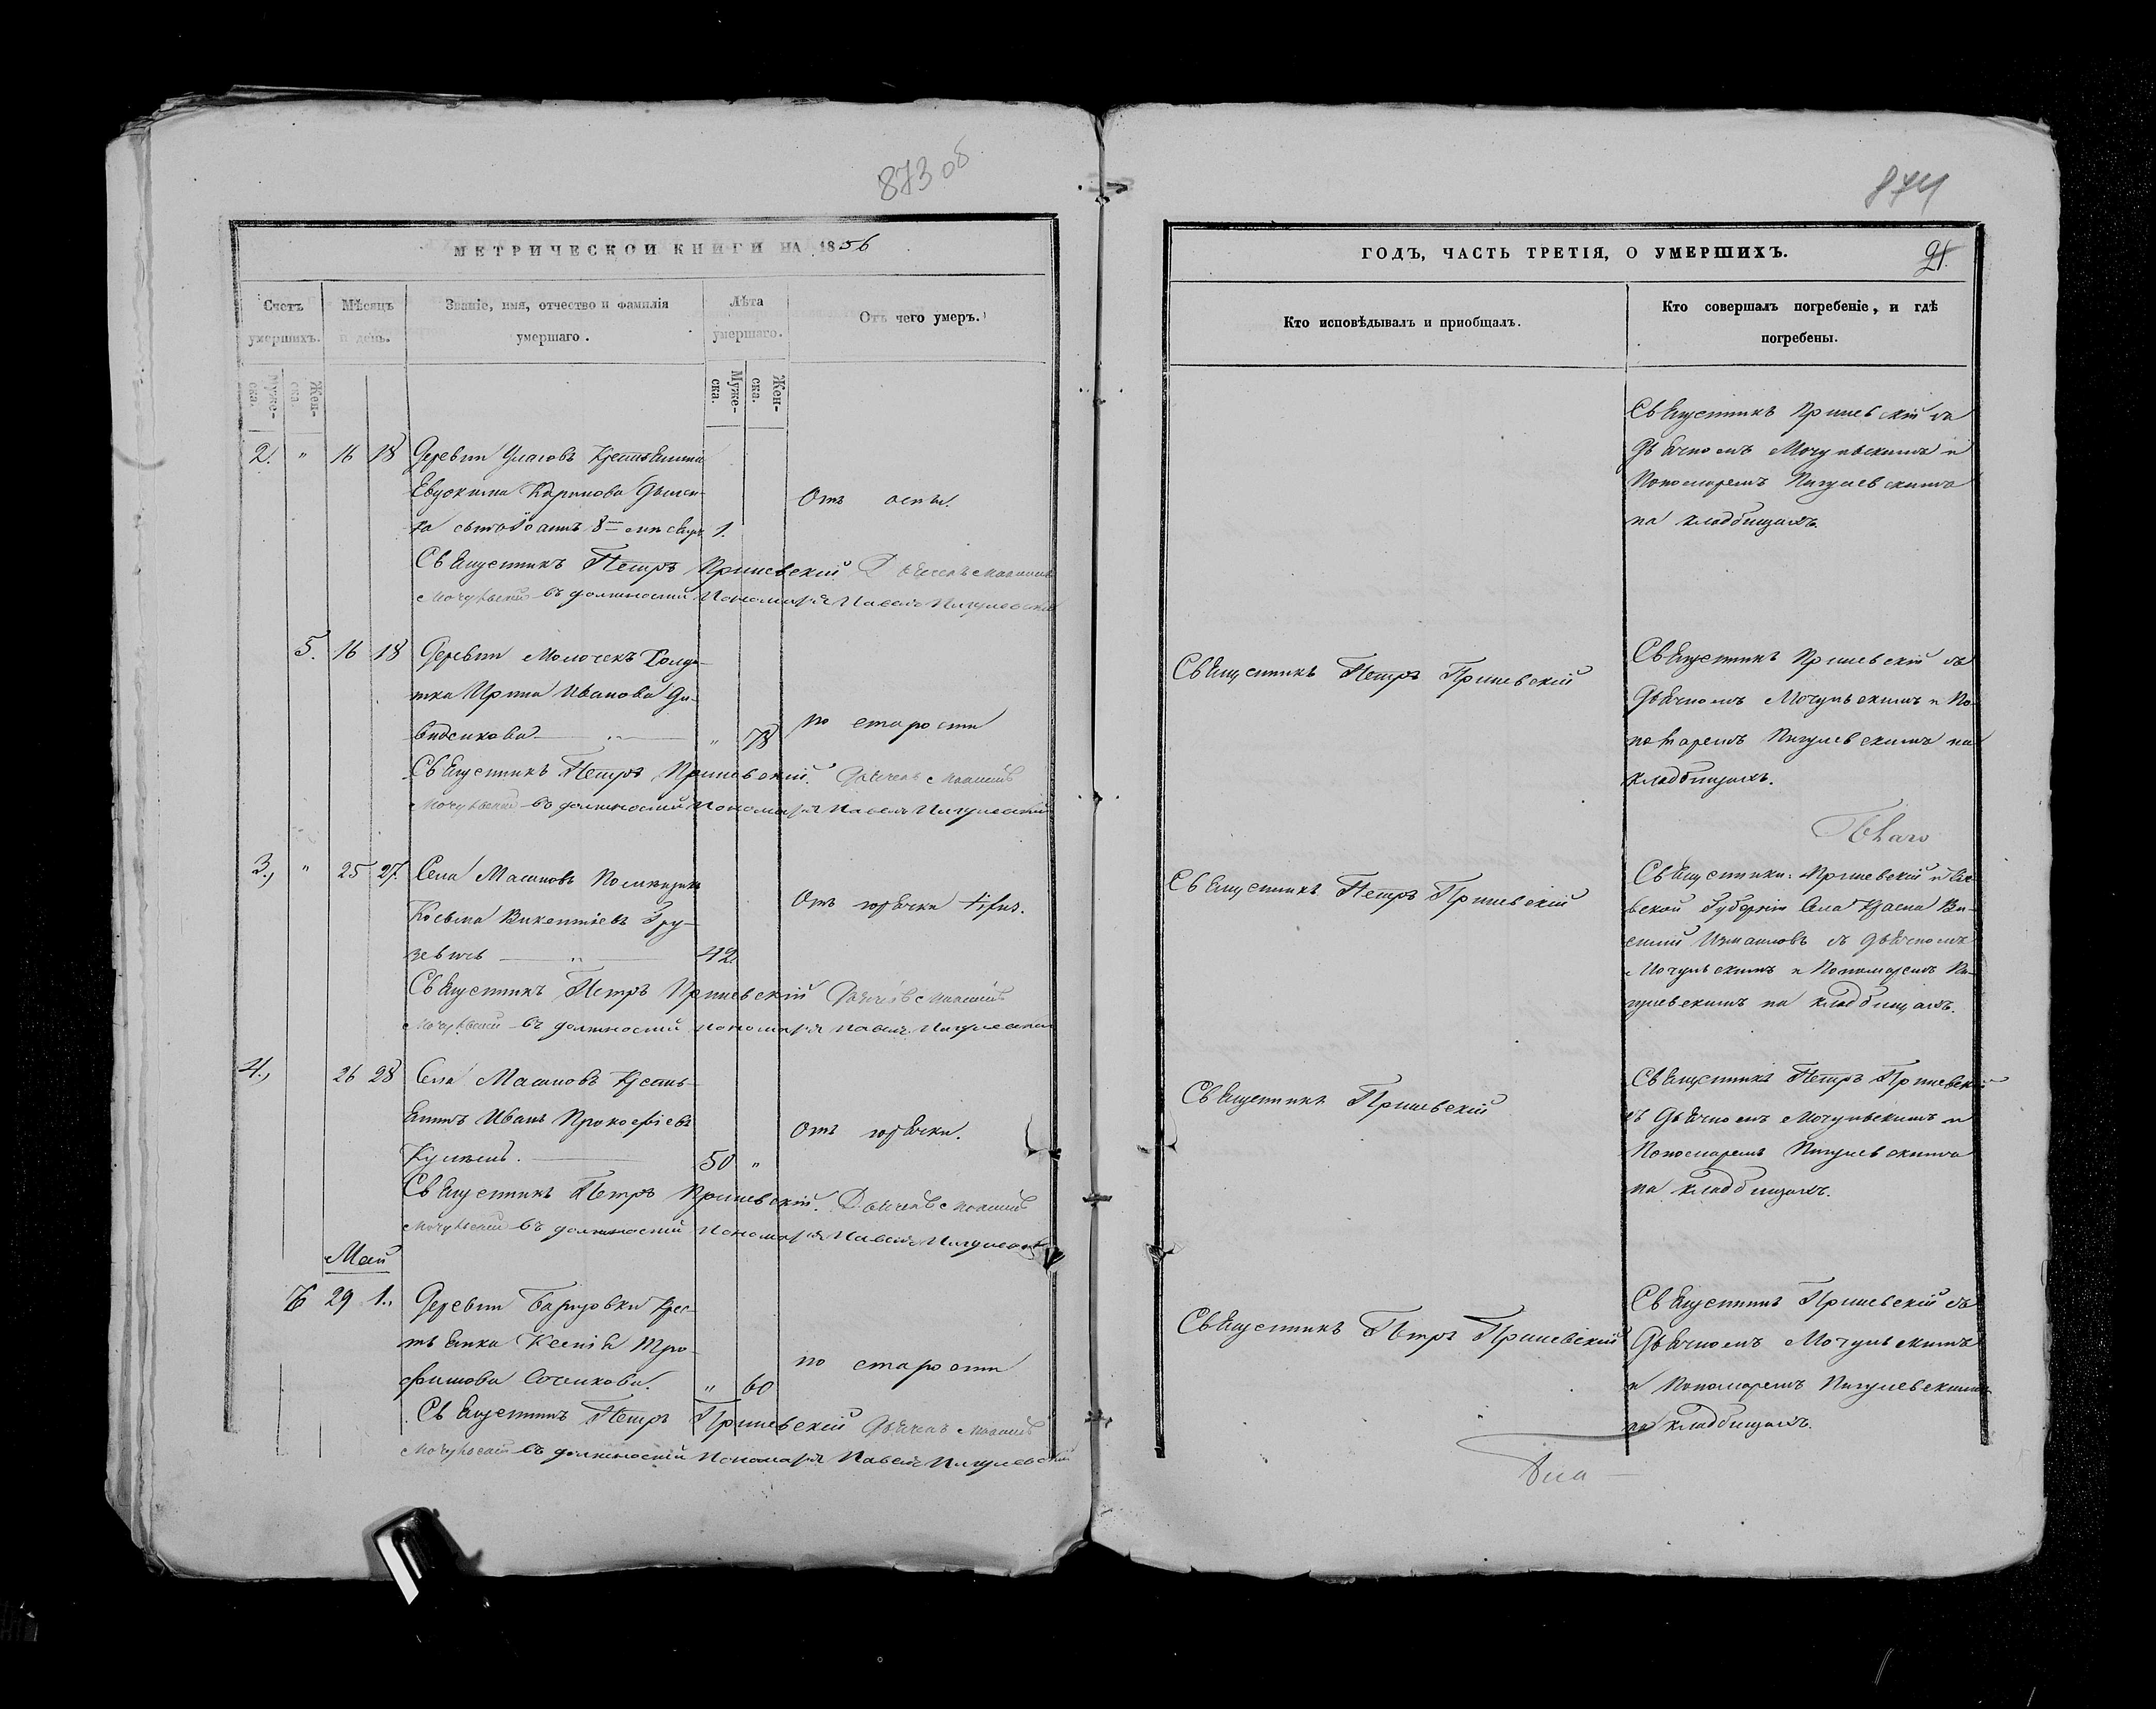 873 об
МЕТРИЧЕСКОЙ КНИГИ НА 1856
Счетъ умершихъ.
Мѣсяцъ и день.
Званіе, имя, отчество и фамилія умершаго.
Лѣта умершаго.
Отъ чего умеръ.
Муже-ска.
Жен-ска.
Муже-ска.
Жен-ска.
2. " 16 18 Деревни Уласовъ Крестьянина
Евдокима Карпова
сынъ 8 мѣсяцъ 1.
Отъ оспы.
Священникъ Петръ Пришевскій Дьячекъ
въ должности Пономаря Павелъ Пигулевскій
5. 16 18 Деревни Молочекъ Солда-
тка Ирина Иванова Да-
видсикова " 78
по старости
Священникъ Петръ Пришевскій. Дьячекъ
въ должности Пономаря Павелъ Пигулевскій
3., " 25 27. Села Машновъ Помѣщикъ
Косьма Викентіевъ Гру-
зевичь " 42
Отъ горячки tifus.
Священникъ Петръ Пришевскій Дьячекъ
въ должности Пономаря Павелъ Пигулевскій
4., 26 28 Села Машновъ Кресть-
янинъ Иванъ Прокофіевъ
50 "
Отъ горячки.
Священникъ Петръ Пришевскій. Дьячекъ
въ должности Пономаря Павелъ Пигулевскій
Май
6 29 1., Деревни Крес-
тьянка Ксенія Тро-
фимова " 60
по старости
Священникъ Петръ Пришевскій Дьячекъ
въ должности Пономаря Павелъ Пигулевскій
874
ГОДЪ, ЧАСТЬ ТРЕТІЯ, О УМЕРШИХЪ.
21.
Кто исповѣдывалъ и пріобщалъ.
Кто совершалъ погребеніе, и гдѣ погребены.
Священникъ Пришевскій съ
Дьячкомъ Мочульскимъ и
Пономаремъ Пигулевскимъ
на кладбищахъ.
Священникъ Петръ Пришевскій
Священникъ Пришевскій съ
Дьячкомъ Мочульскимъ и По-
номаремъ Пигулевскимъ на
кладбищахъ.
Священникъ Петръ Пришевскій
Священники: Пришевскій и Кіе-
вской Губерніи Села
съ Дьячкомъ
Мочульскимъ и Пономаремъ Пи-
гулевскимъ на кладбищахъ.
Священникъ Пришевскій
Священникъ Петръ Пришевскій
съ Дьячкомъ Мочульскимъ и
Пономаремъ Пигулевскимъ
на кладбищахъ.
Священникъ Петръ Пришевскій
Священникъ Пришевскій съ
Дьячкомъ Мочульскимъ
и Пономаремъ Пигулевскимъ
на кладбищахъ.